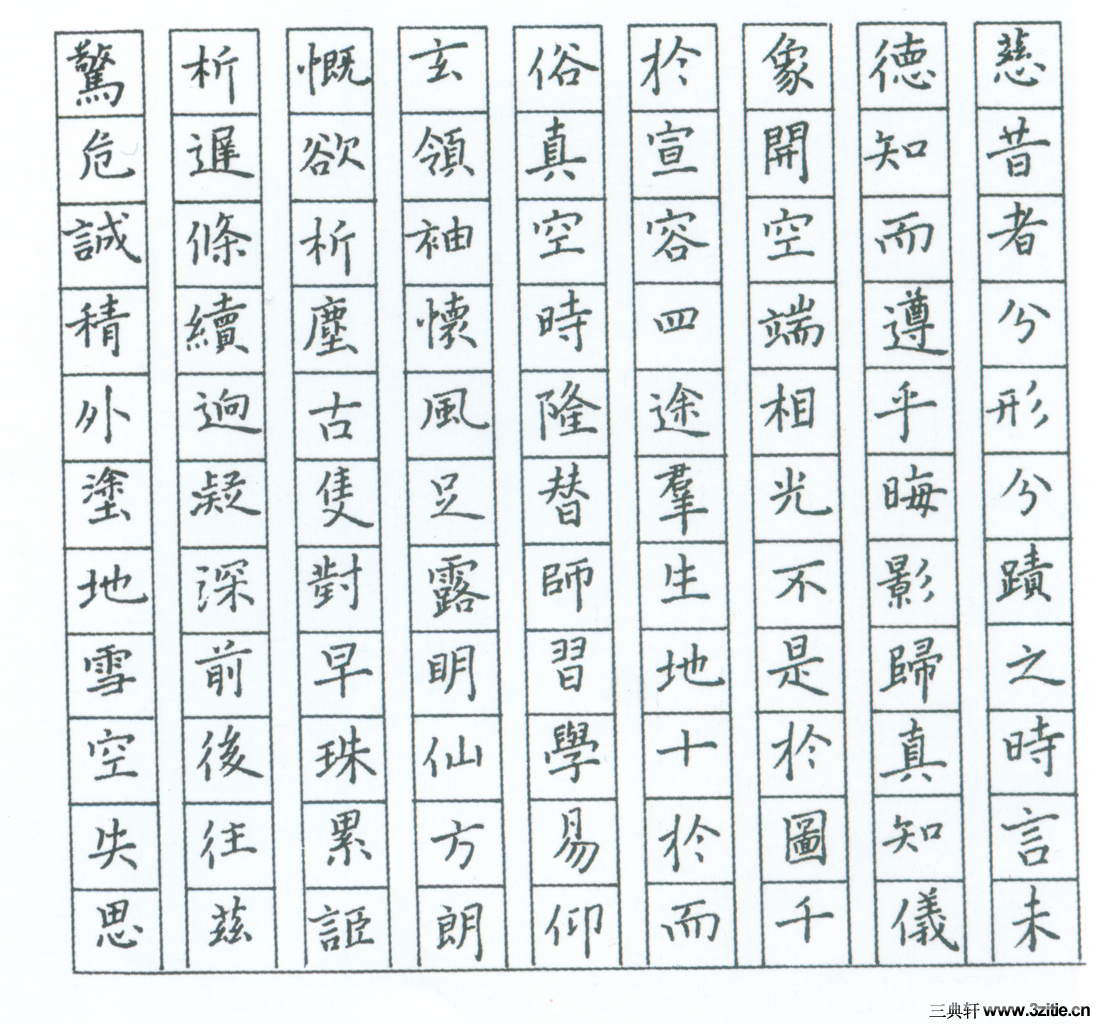 慈昔者分形分蹟之時言未
德知而遵乎晦影歸真知儀
象開空端相光不是於圖千
於宣容四途羣生地十於而
俗真空時隆替師習學易仰
玄領袖懷風足露明仙方朗
慨欲析塵古隻對早珠累詎
析遲條續迥凝深前後往茲
驚危誠積外塗地雪空失思
三典轩 www.3zitie.cn